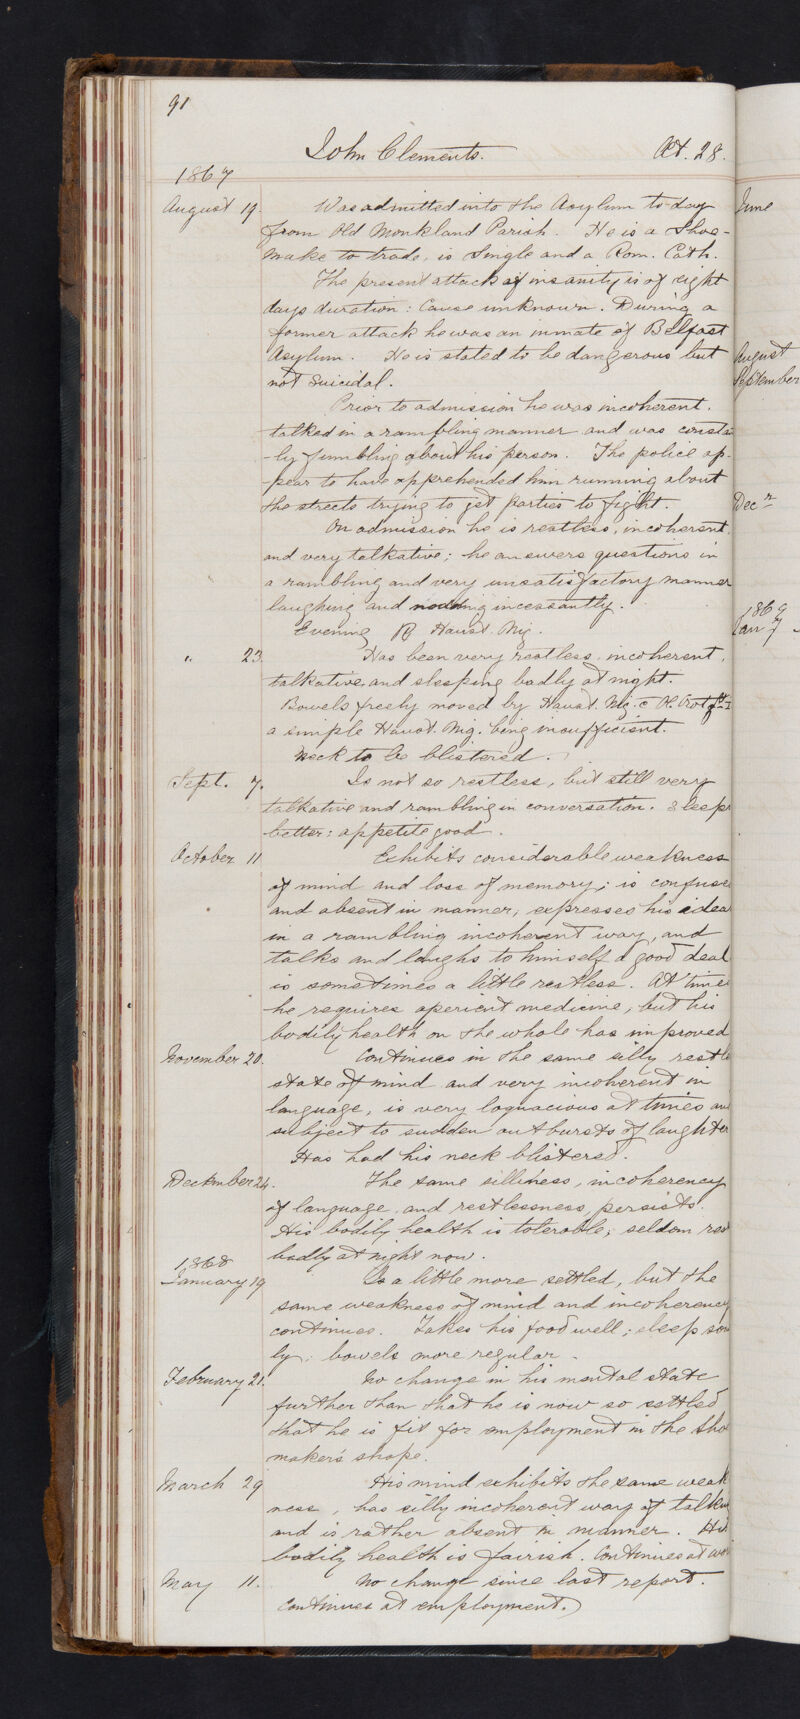 91
John Clements. Æt. 28.
1867
August 19. Was admitted into the Asylum to-day
from Old Monkland Parish. He is a Shoe-
make to trade, is Single and a Rom. Cath.
The present attack of insanity is of eight
days duration: Cause unknown. During a
former attack he was an inmate of Belfast
Asylum. He is stated to be dangerous but
not suicidal.
Prior to admission he was incoherent,
talked in a rambling manner and was consta
-ly fumbling about his person. The police ap-
-pear to have apprehended him running about
the streets trying to get parties to fight.
On admission he is restless, incoherent,
and very talkative; he answers questions in
a rambling and very unsatisfactory manner
laughing and nodding incessantly.
Evening ℞ Haust. Nig.
" 23. Has been very restless, incoherent,
talkative and sleeping badly at night.
Bowels freely moved by Haust. Nig. c Ol. Crot
a simple Haust. Nig. being insufficient.
Neck to be blistered.
Sept. 7. Is not so restless, but still very
talkative and rambling in conversation. Sleeps
better: appetite good.
October 11 Exhibits considerable weakness
of mind and loss of memory; is confuse
and absent in manner, expresses his idea
in a rambling incoherent way, and
talks and laughs to himself a good deal
is sometimes a little restless. At time
he requires aperient medicine, but his
bodily health on the whole has improved
November 20. Continues in the same silly restl
state of mind and very incoherent in
language, is very loquacious at times an
subject to sudden outbursts of laughter
Has had his neck blistered.
December 24. The same silliness, incoherency
of language, and restlessness, persists.
His bodily health is tolerable; seldom res
badly at night now.
1868
January 19 Is a little more settled, but the
same weakness of mind and incoherency
continues. Takes his food well; sleep soun
ly; bowels more regular.
February 21. No change in his mental state
further than that he is now so settled
that he is fit for employment in the Sho
maker's shope.
March 29 His mind exhibits the same weak
ness, has silly incoherent way of talkin
and is rather absent in manner. His
bodily health is fairish. Continues at wo
May 11. No change since last report.
Continues at employment.
June
August
September
Decr
1869
Jan 7